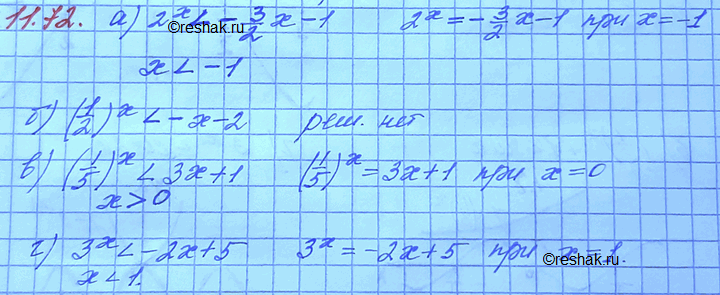 11.72. а) 2^x < -3/2 x - 1    2^x = -3/2 x - 1 при x = -1
©reshak.ru
x < -1
б) (1/2)^x < -x-2    реш. нет
в) (1/5)^x < 3x+1    (1/5)^x = 3x+1 при x = 0
x > 0
г) 3^x < -2x+5    3^x = -2x+5 при x = 1.
©reshak.ru
x < 1.